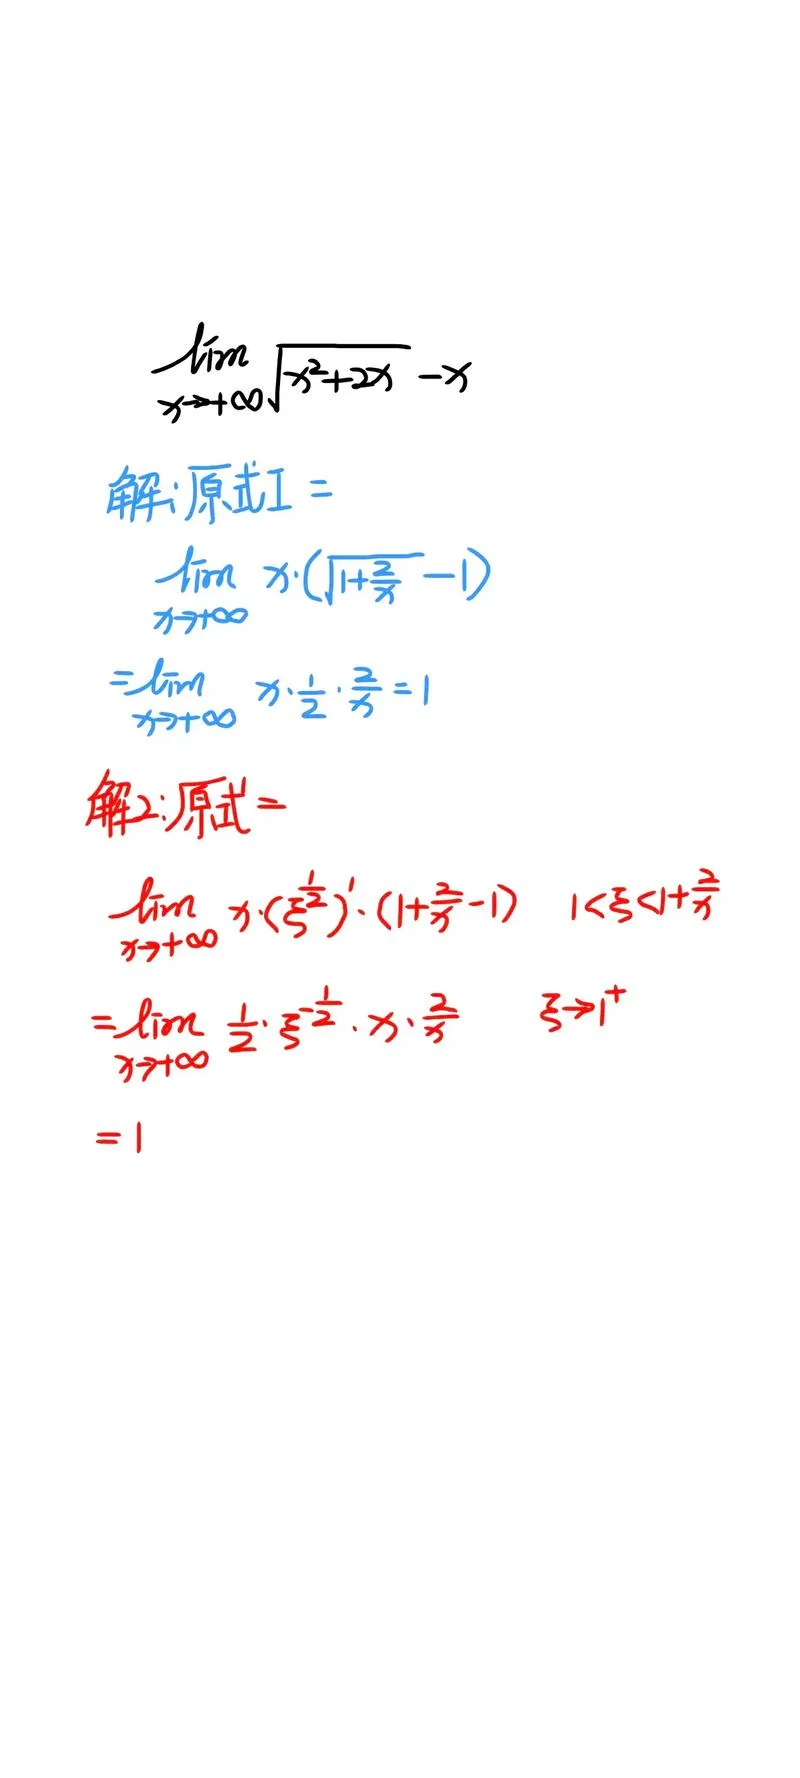 lim x→+∞ √(x²+2x) −x
解:原式I =
lim x→+∞ x·(√(1+2/x) −1)
=lim x→+∞ x·1/2·2/x=1
解2:原式=
lim x→+∞ x·(ξ^(1/2))'·(1+2/x−1) 1<ξ<1+2/x
=lim x→+∞ 1/2·ξ^(−1/2)·x·2/x ξ→1⁺
=1